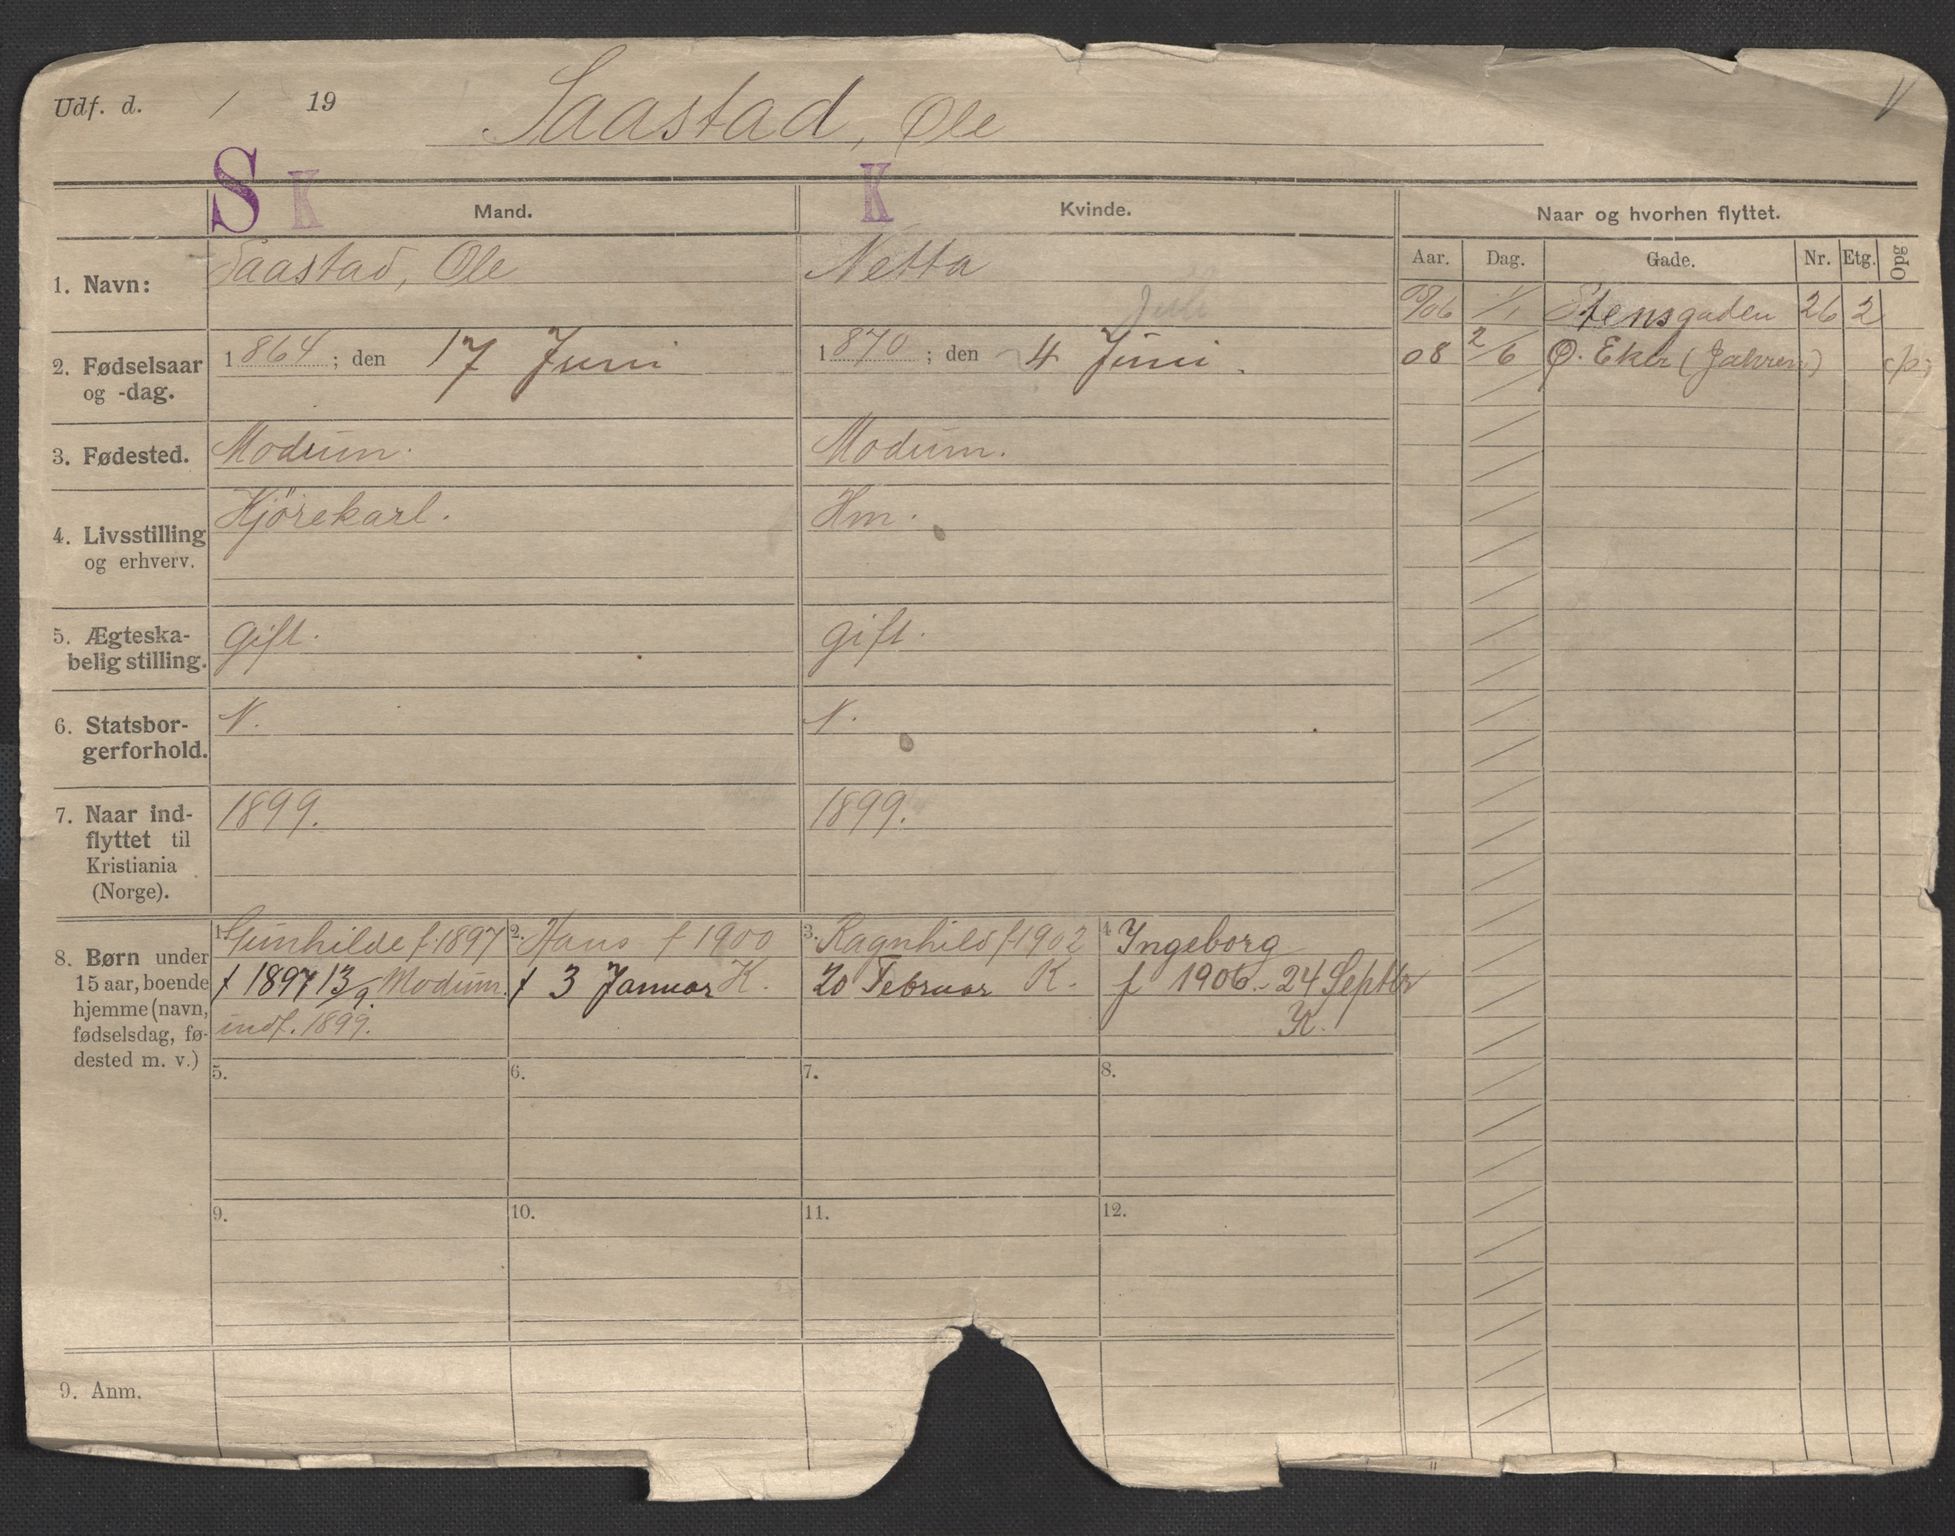 Udf. d. / 19
Saastad, Ole
V
S K K
Mand. Kvinde. Naar og hvorhen flyttet.
Aar. Dag. Gade. Nr. Etg. Opg
1. Navn: Saastad, Ole Netta
Juli
2. Fødselsaar og -dag. 1864; den 17 Juni 1870; den 4 Juni.
3. Fødested. Modum. Modum.
4. Livsstilling og erhverv. Kjörekarl. Hm.
5. Ægteska-
belig stilling. gift. gift.
6. Statsbor-
gerforhold. N. N.
7. Naar ind-
flyttet til
Kristiania
(Norge). 1899. 1899.
8. Børn under
15 aar, boende
hjemme (navn,
fødselsdag, fø-
dested m. v.)
1. Gunhilde f. 1897
f 1897 13/9. Modum.
indf. 1899.
2. Hans f 1900
f 3 Januar K.
3. Ragnhild f 1902
20 Februar K.
4. Ingeborg
f 1906 - 24 Septbr
K.
5. 6. 7. 8.
9. 10. 11. 12.
9. Anm.
05/06 1/1 Stensgaden 26 2
08 2/6 Ø. Eker (Jahren)